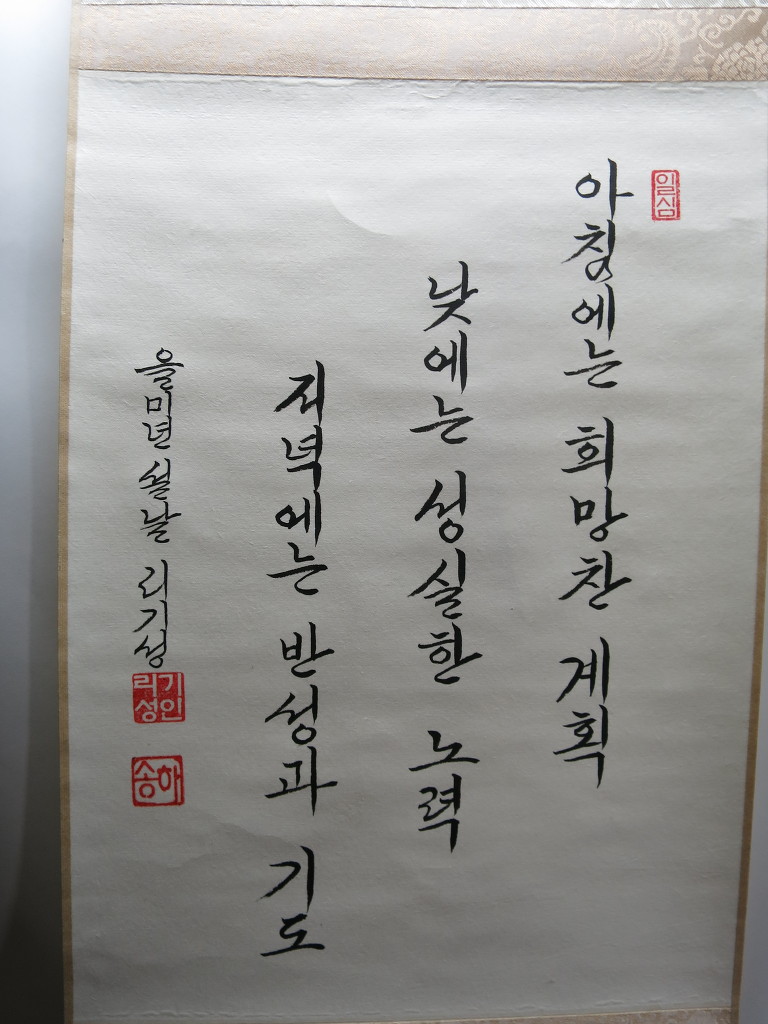 일심
아침에는 희망찬 계획
낮에는 성실한 노력
저녁에는 반성과 기도
을미년 설날 리기성
리기성인
하송